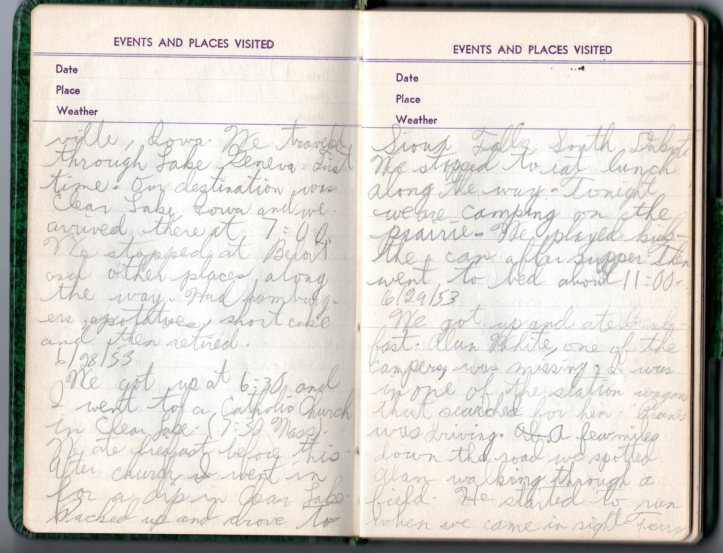 EVENTS AND PLACES VISITED
Date
Place
Weather
ville, Iowa. We traveled
through Lake Geneva - first
time. Our destination was
Clear Lake, Iowa and we
arrived there at 7:00.
We stopped at Beloit
and other places along
the way. Had hamburg-
ers, potatoes, short cake
and then retired.
6/28/53
We got up at 6:30, and
I went to a Catholic Church
in Clear Lake. (7:30 Mass).
We ate breakfast before this.
After church I went in
for a dip in Clear Lake.
Packed up and drove to
EVENTS AND PLACES VISITED
Date
Place
Weather
Sioux Falls South Dakota
We stopped to eat lunch
along the way. Tonight
we are camping on the
prairie. We played kick-
the can after supper then
went to bed about 11:00.
6/29/53
We got up and ate break-
fast. Alan White, one of the
campers, was missing. I was
in one of the station wagons
that searched for him.
was driving. A few miles
down the road we spotted
Alan walking through a
field. He started to run
when we came in sight. Terry